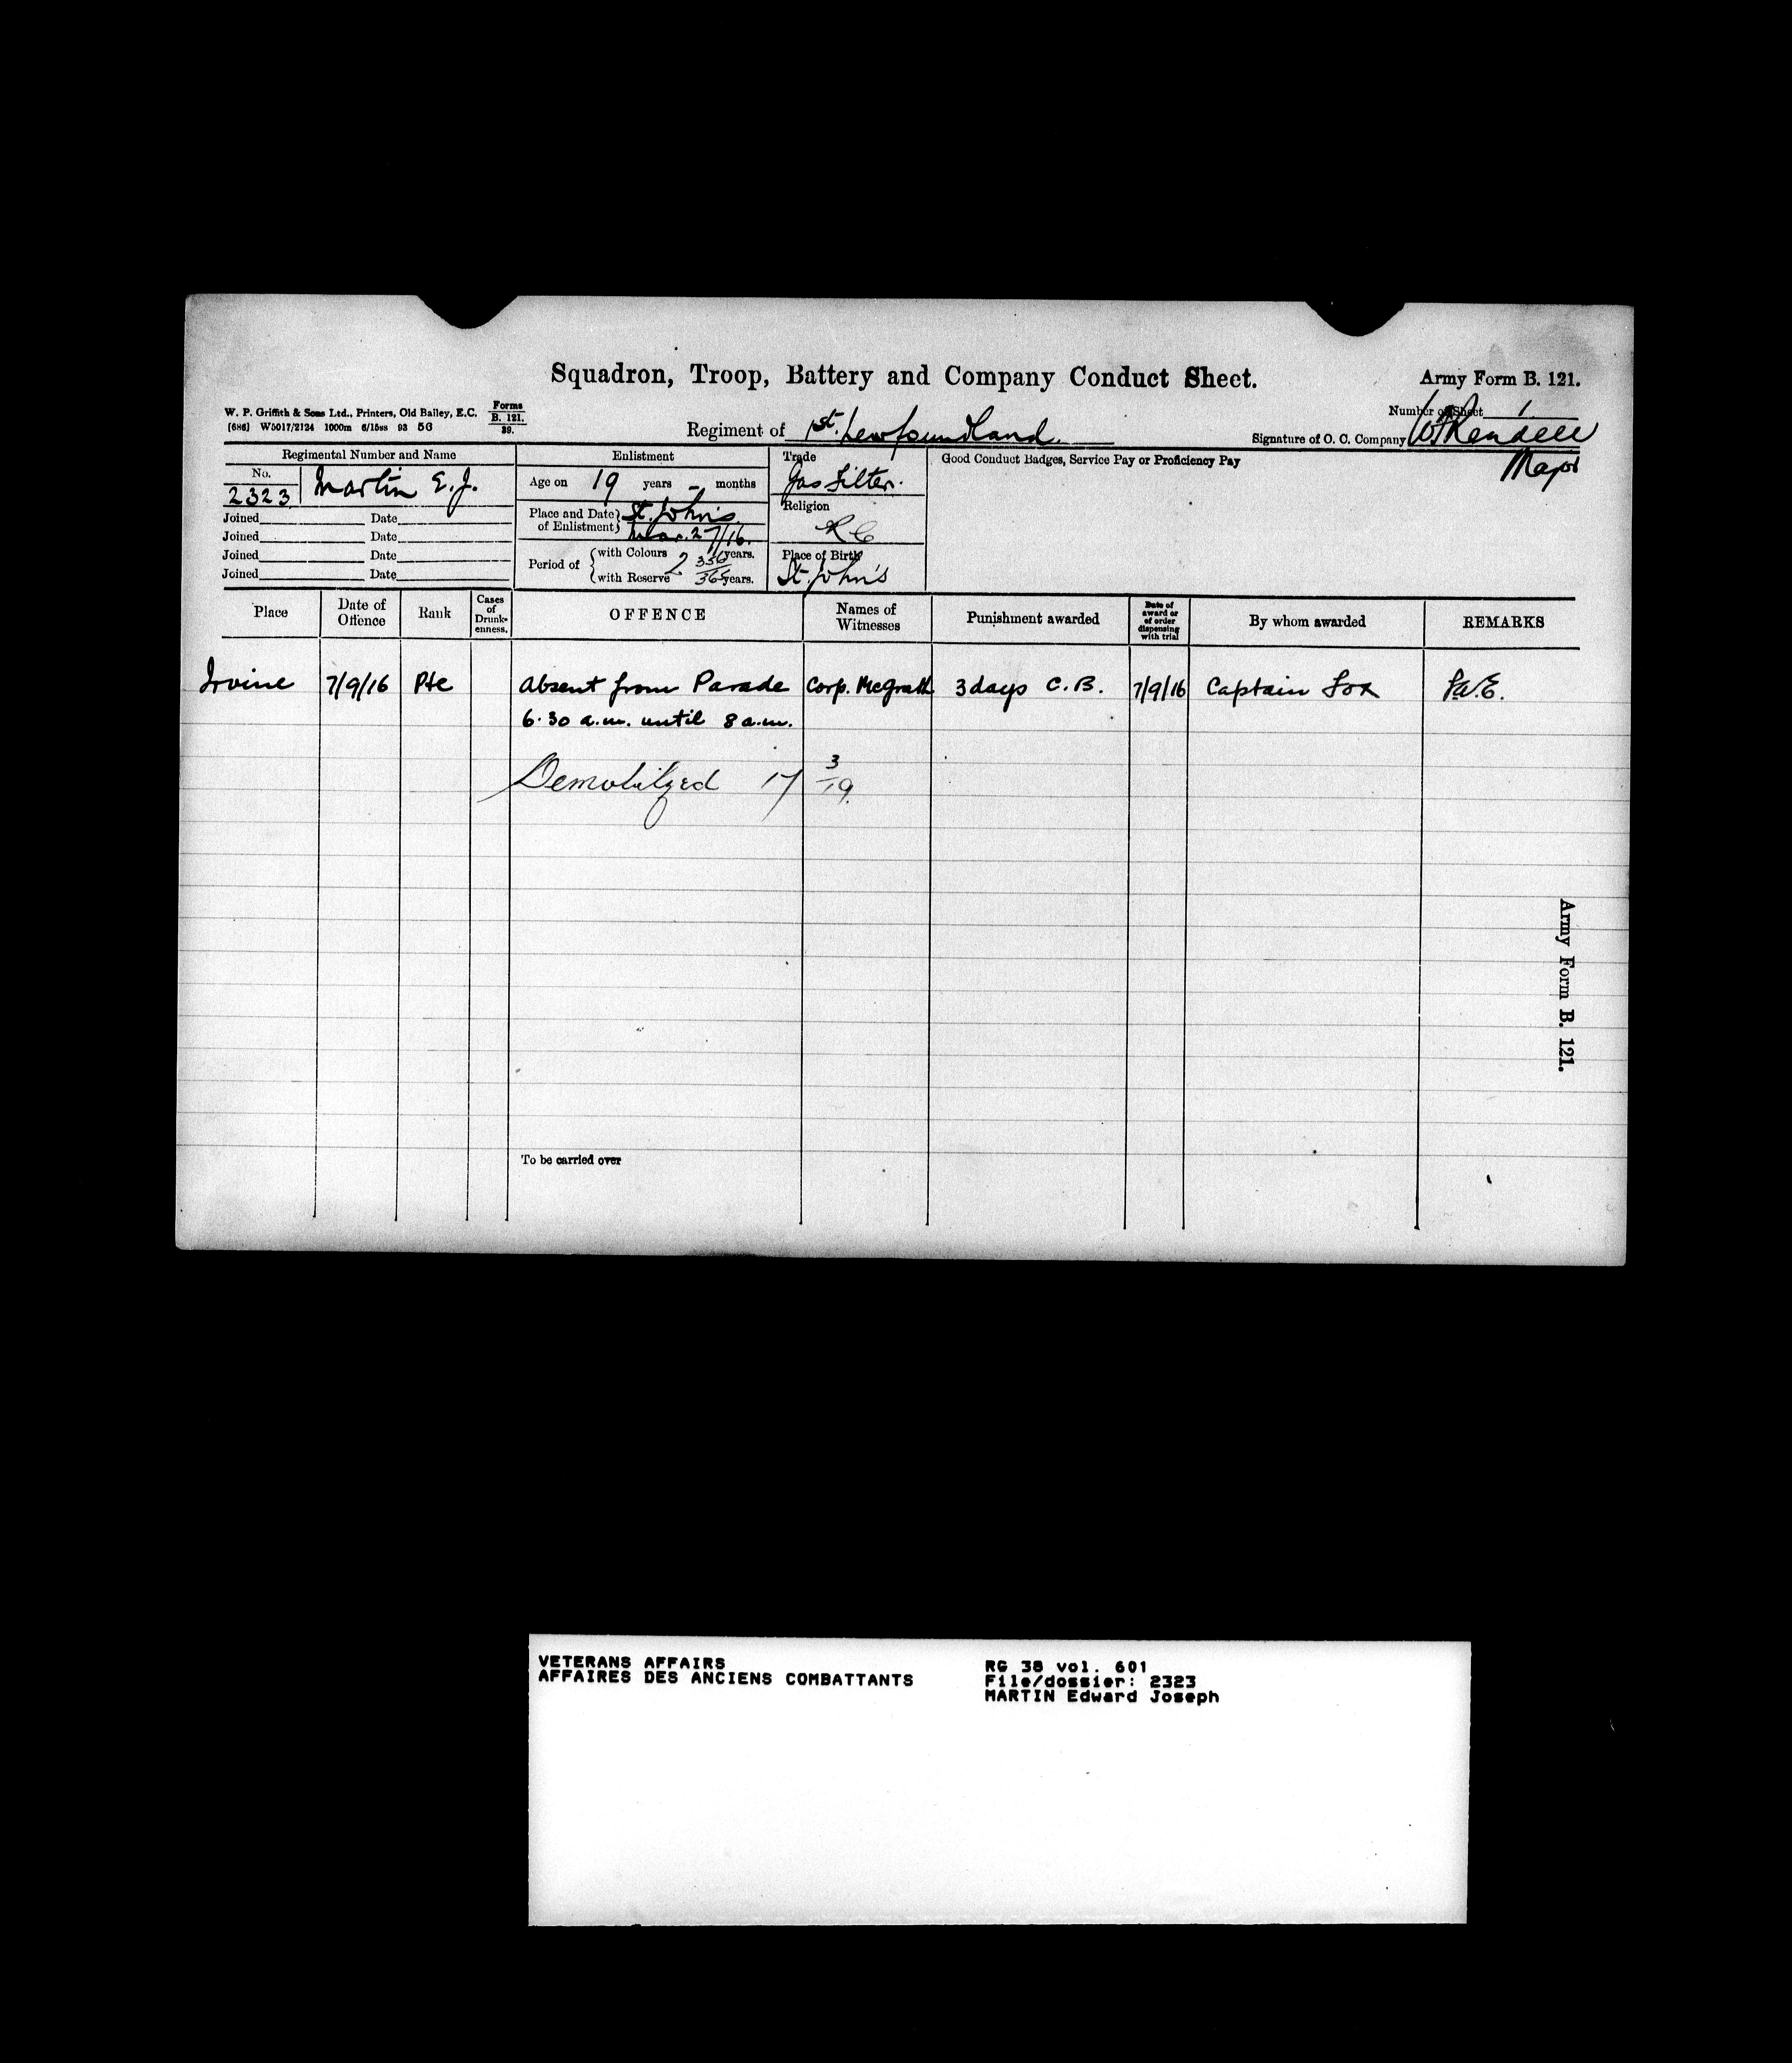 Squadron, Troop, Battery and Company Conduct Sheet.
Army Form B. 121.
W. P. Griffith & Sons Ltd., Printers, Old Bailey, E.C.
(686) W5017/2124 1000m 6/15ss 93 5G
Forms
B. 121.
39.
Number of Sheet 1
Regiment of 1st. Newfoundland.
Signature of O. C. Company W Rendell
Major
Regimental Number and Name
No.
2323
Martin E. J.
Joined Date
Joined Date
Joined Date
Joined Date
Enlistment
Age on 19 years - months
Place and Date of Enlistment St. John's
Mar. 27/16.
Period of with Colours 2 356/365 years.
with Reserve years.
Trade
Gas Fitter.
Religion
R C
Place of Birth
St. John's
Good Conduct Badges, Service Pay or Proficiency Pay
Place
Date of Offence
Rank
Cases of Drunkenness.
OFFENCE
Names of Witnesses
Punishment awarded
Date of award or of order dispensing with trial
By whom awarded
REMARKS
Irvine 7/9/16 Pte Absent from Parade Corp. McGrath 3 days C.B. 7/9/16 Captain Fox
6.30 a.m. until 8 a.m.
Demobilized 17 3/19.
To be carried over
Army Form B. 121.
VETERANS AFFAIRS
AFFAIRES DES ANCIENS COMBATTANTS
RG 38 vol. 601
File/dossier: 2323
MARTIN Edward Joseph